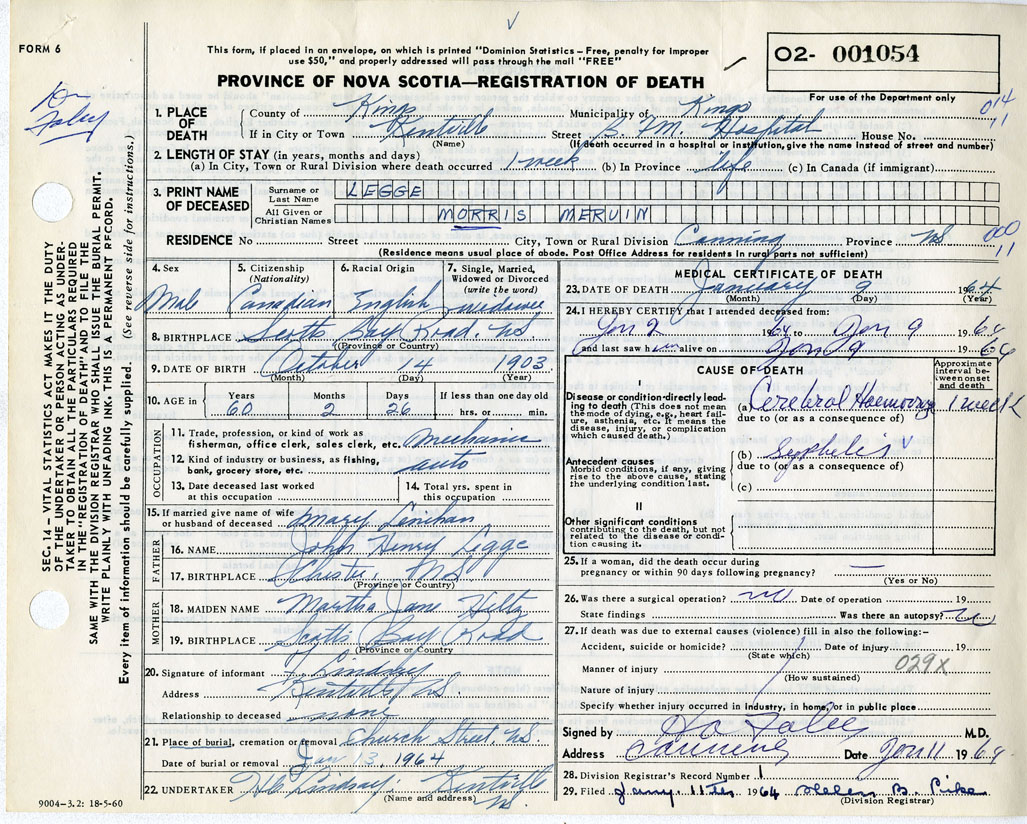 FORM 6
This form, if placed in an envelope, on which is printed "Dominion Statistics – Free, penalty for improper
use $50," and properly addressed will pass through the mail "FREE"
PROVINCE OF NOVA SCOTIA—REGISTRATION OF DEATH
O2- 001054
For use of the Department only
014
11
Dr
Foley
1. PLACE OF DEATH
County of Kings Municipality of Kings
If in City or Town Kentville Street B. F.M. Hospital House No.
(Name) (If death occurred in a hospital or institution, give the name instead of street and number)
2. LENGTH OF STAY (in years, months and days)
(a) In City, Town or Rural Division where death occurred 1 week (b) In Province life (c) In Canada (if immigrant)
3. PRINT NAME OF DECEASED
Surname or Last Name LEGGE
All Given or Christian Names MORRIS MERVIN
RESIDENCE No. Street City, Town or Rural Division Canning Province NS
000
11
(Residence means usual place of abode. Post Office Address for residents in rural parts not sufficient)
4. Sex
Male
5. Citizenship (Nationality)
Canadian
6. Racial Origin
English
7. Single, Married, Widowed or Divorced (write the word)
widower
8. BIRTHPLACE Scotts Bay Road, NS
(Province or Country)
9. DATE OF BIRTH October 14 1903
(Month) (Day) (Year)
10. AGE in Years Months Days If less than one day old
60 2 26 hrs. or min.
OCCUPATION
11. Trade, profession, or kind of work as
fisherman, office clerk, sales clerk, etc. mechanic
12. Kind of industry or business, as fishing,
bank, grocery store, etc. auto
13. Date deceased last worked
at this occupation
14. Total yrs. spent in
this occupation
15. If married give name of wife
or husband of deceased Mary Lenihan
FATHER
16. NAME John Henry Legge
17. BIRTHPLACE Chester, NS
(Province or Country)
MOTHER
18. MAIDEN NAME Martha Jane Hiltz
19. BIRTHPLACE Scotts Bay Road
(Province or Country)
20. Signature of informant Lindsay
Address Kentville, NS
Relationship to deceased none
21. Place of burial, cremation or removal Church Street, NS.
Date of burial or removal Jan 13, 1964
22. UNDERTAKER Lindsay, Kentville
(Name and address) NS
9004–3.2: 18-5-60
MEDICAL CERTIFICATE OF DEATH
23. DATE OF DEATH January 9 1964
(Month) (Day) (Year)
24. I HEREBY CERTIFY that I attended deceased from:
Jan 2 1964 to Jan 9 1964
and last saw him alive on Jan 9 1964
CAUSE OF DEATH
Approximate interval between onset and death
I
Disease or condition directly leading to death (This does not mean the mode of dying, e.g., heart failure, asthenia, etc. It means the disease, injury, or complication which caused death.)
(a) Cerebral Haemorrhage 1 week
due to (or as a consequence of)
Antecedent causes
Morbid conditions, if any, giving rise to the above cause, stating the underlying condition last.
(b) Syphelis
due to (or as a consequence of)
(c)
II
Other significant conditions
contributing to the death, but not related to the disease or condition causing it.
25. If a woman, did the death occur during
pregnancy or within 90 days following pregnancy? —
(Yes or No)
26. Was there a surgical operation? no Date of operation 19
State findings Was there an autopsy? no
27. If death was due to external causes (violence) fill in also the following:–
Accident, suicide or homicide? Date of injury 19
(State which)
029x
Manner of injury
(How sustained)
Nature of injury
Specify whether injury occurred in industry, in home, or in public place
Signed by M.D.
Address Canning Date Jan 11 1964
28. Division Registrar's Record Number 1
29. Filed 11 1964 Helen B. Pike
(Division Registrar)
SEC. 14 – VITAL STATISTICS ACT MAKES IT THE DUTY
OF THE UNDERTAKER OR PERSON ACTING AS UNDER-
TAKER TO OBTAIN ALL THE PARTICULARS REQUIRED
IN THE "REGISTRATION OF DEATH" AND TO FILE THE
SAME WITH THE DIVISION REGISTRAR WHO SHALL ISSUE THE BURIAL PERMIT.
WRITE PLAINLY WITH UNFADING INK. THIS IS A PERMANENT RECORD.
Every item of information should be carefully supplied. (See reverse side for instructions.)